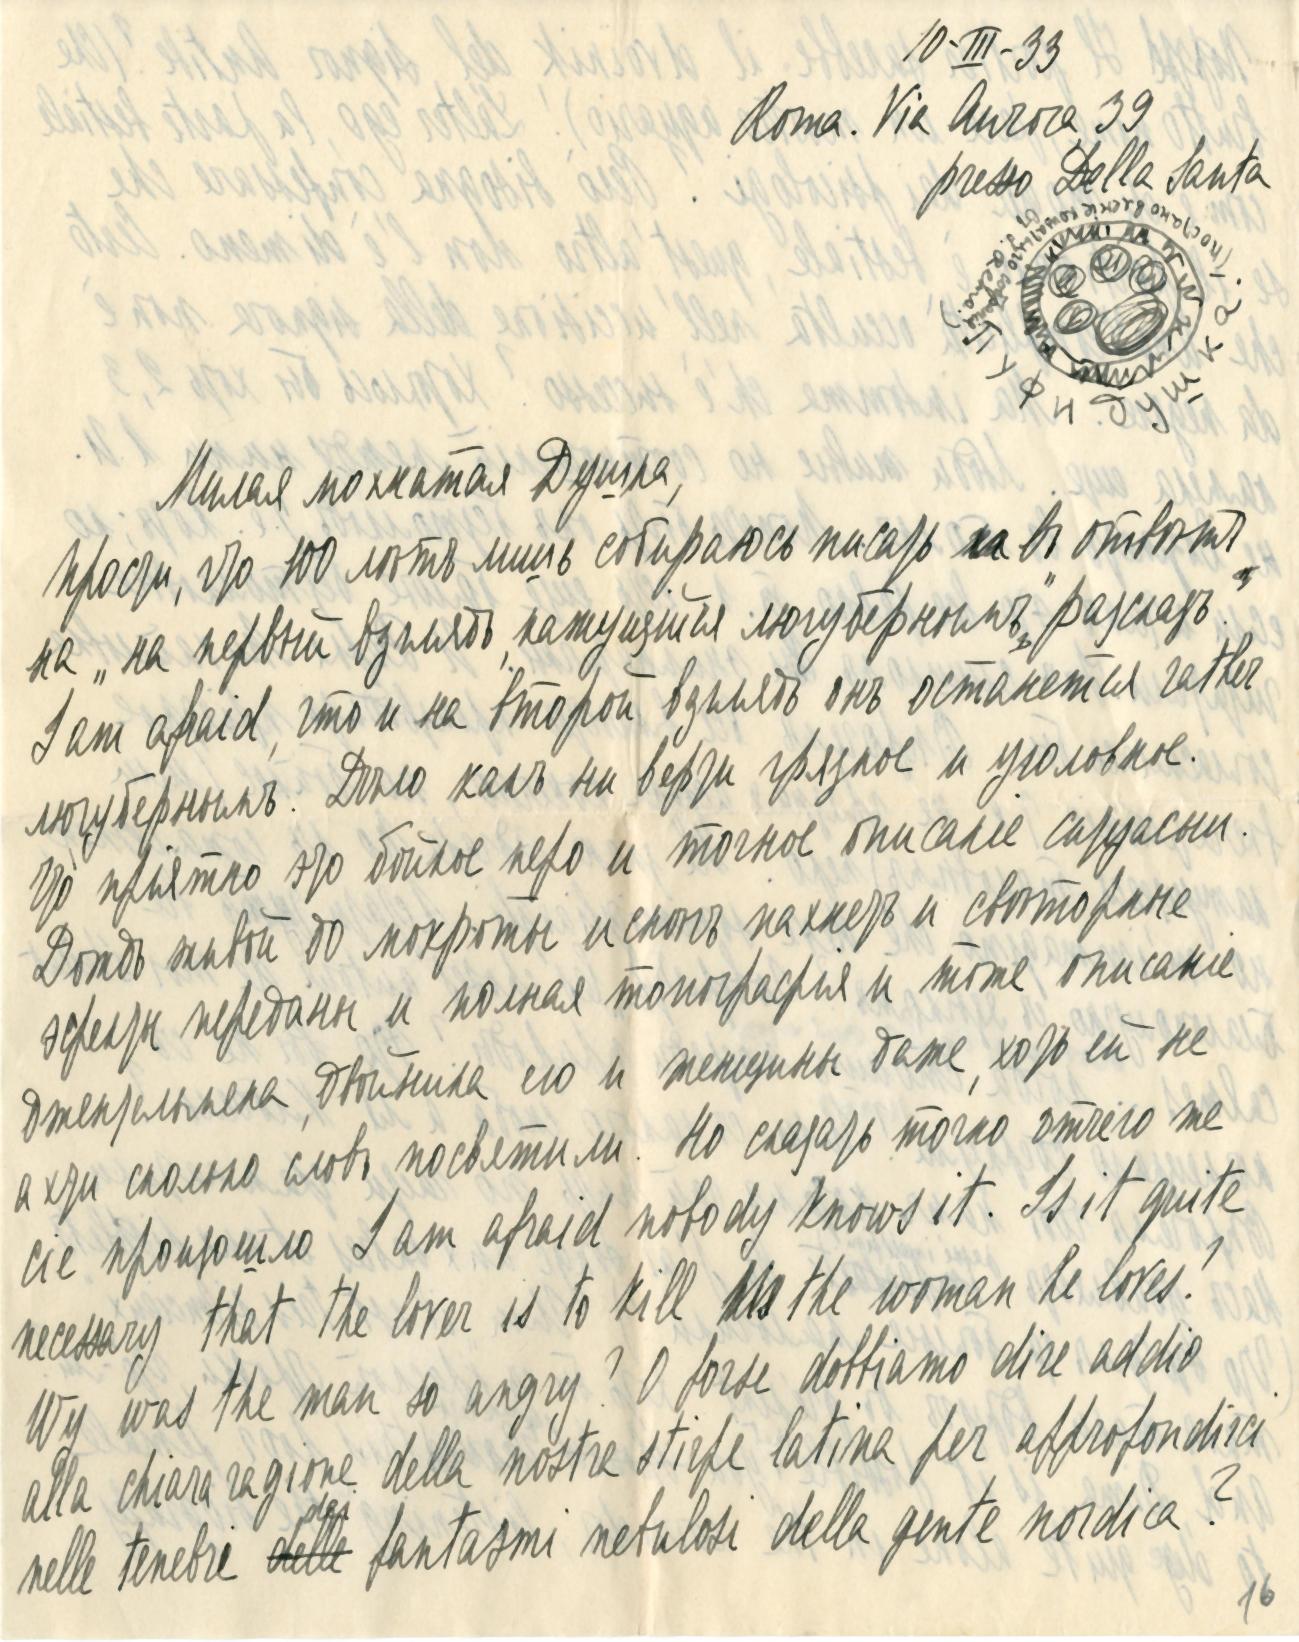 10-III-33
Roma. Via Aurora 39
presso Della Santa
Милая мохнатая Душка,
прости, что 100 лѣтъ лишь собираюсь писать въ отвѣтъ
на „на первый взглядъ, кажущійся люгубернымъ" разсказъ".
I am afraid, что и на второй взглядъ онъ останется rather
люгубернымъ. Дѣло какъ ни верти грязное и уголовное.
Что пріятно это бойкое перо и точное описаніе
Дождь живой до мокроты и пахнетъ и свѣторные
эфекты переданы и полная топографія и тоже описаніе
джентльмена, двойника его и женщины даже, хоть ей не
ахти сколько словъ посвятили. Но сказать точно отчего же
сіе произошло I am afraid nobody knows it. Is it quite
necessary that the lover is to kill the woman he loves?
Wy was the man so angry? O forse dobbiamo dire addio
alla chiara ragione della nostra stirpe latina per approfondirci
nelle tenebre delle dei fantasmi nebulosi della gente nordica?
16